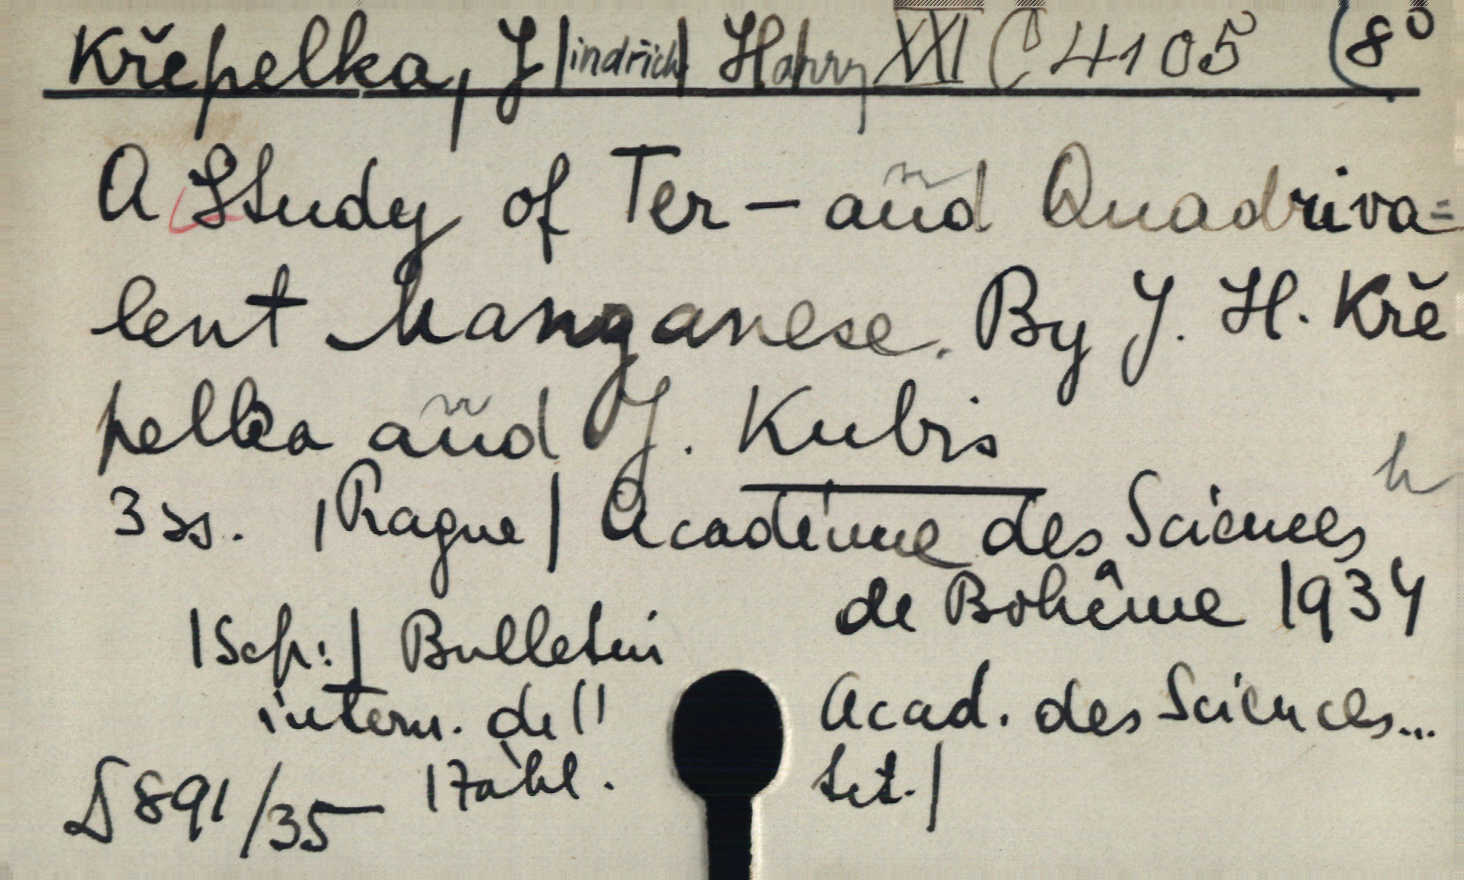 Křepelka, J|indřich| Harry XXI C 4105 (8°
A Study of Ter- and Quadriva=
lent Manganese. By J. H. Kře
pelka and J. Kubis
3 ss. |Prague| Académie des Sciences
de Bohême 1934
|Sep:| Bulletin
intern. de l' Acad. des Sciences...
|Záhl. tit.|
D 891/35